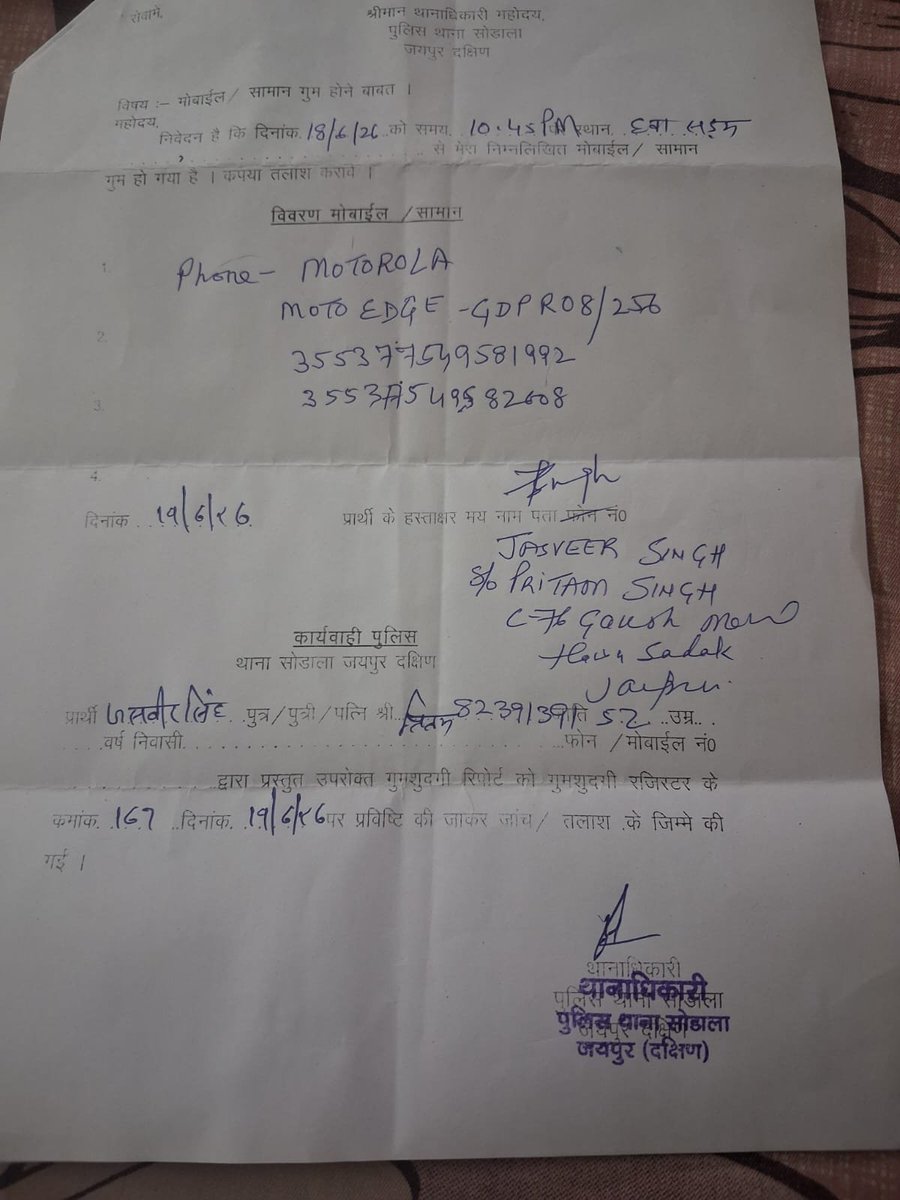 सेवामे,
श्रीमान थानाधिकारी महोदय,
पुलिस थाना सोडाला
जयपुर दक्षिण
विषय :– मोबाईल / सामान गुम होने बाबत ।
महोदय,
निवेदन है कि दिनांक. 18/6/26 ..को समय. 10.45 PM स्थान ..हवा सड़क
से मेरा निम्नलिखित मोबाईल / सामान
गुम हो गया है । कृपया तलाश करावे ।
विवरण मोबाईल /सामान
1.
Phone - MOTOROLA
MOTO EDGE - GDPRO8/256
2.
355377549581992
3.
4.
दिनांक ..19/6/26.
प्रार्थी के हस्ताक्षर मय नाम पता फोन नं0
JASVEER SINGH
S/o PRITAM SINGH
C-76
Hava Sadak
Jaipur.
कार्यवाही पुलिस
थाना सोडाला जयपुर दक्षिण
प्रार्थी जसवीर सिंह. पुत्र/पुत्री/पत्नि श्री.. 52 .. उम्र. .
. . .वर्ष निवासी. . . . फोन / मोबाईल नं0
द्वारा प्रस्तुत उपरोक्त गुमशुदगी रिपोर्ट को गुमशुदगी रजिस्टर के
कमांक. 167 ..दिनांक. 19/6/26 पर प्रविष्टि की जाकर जांच/ तलाश .के जिम्मे की
गई ।
थानाधिकारी
पुलिस थाना सोडाला
जयपुर दक्षिण
थानाधिकारी
पुलिस थाना सोडाला
जयपुर (दक्षिण)